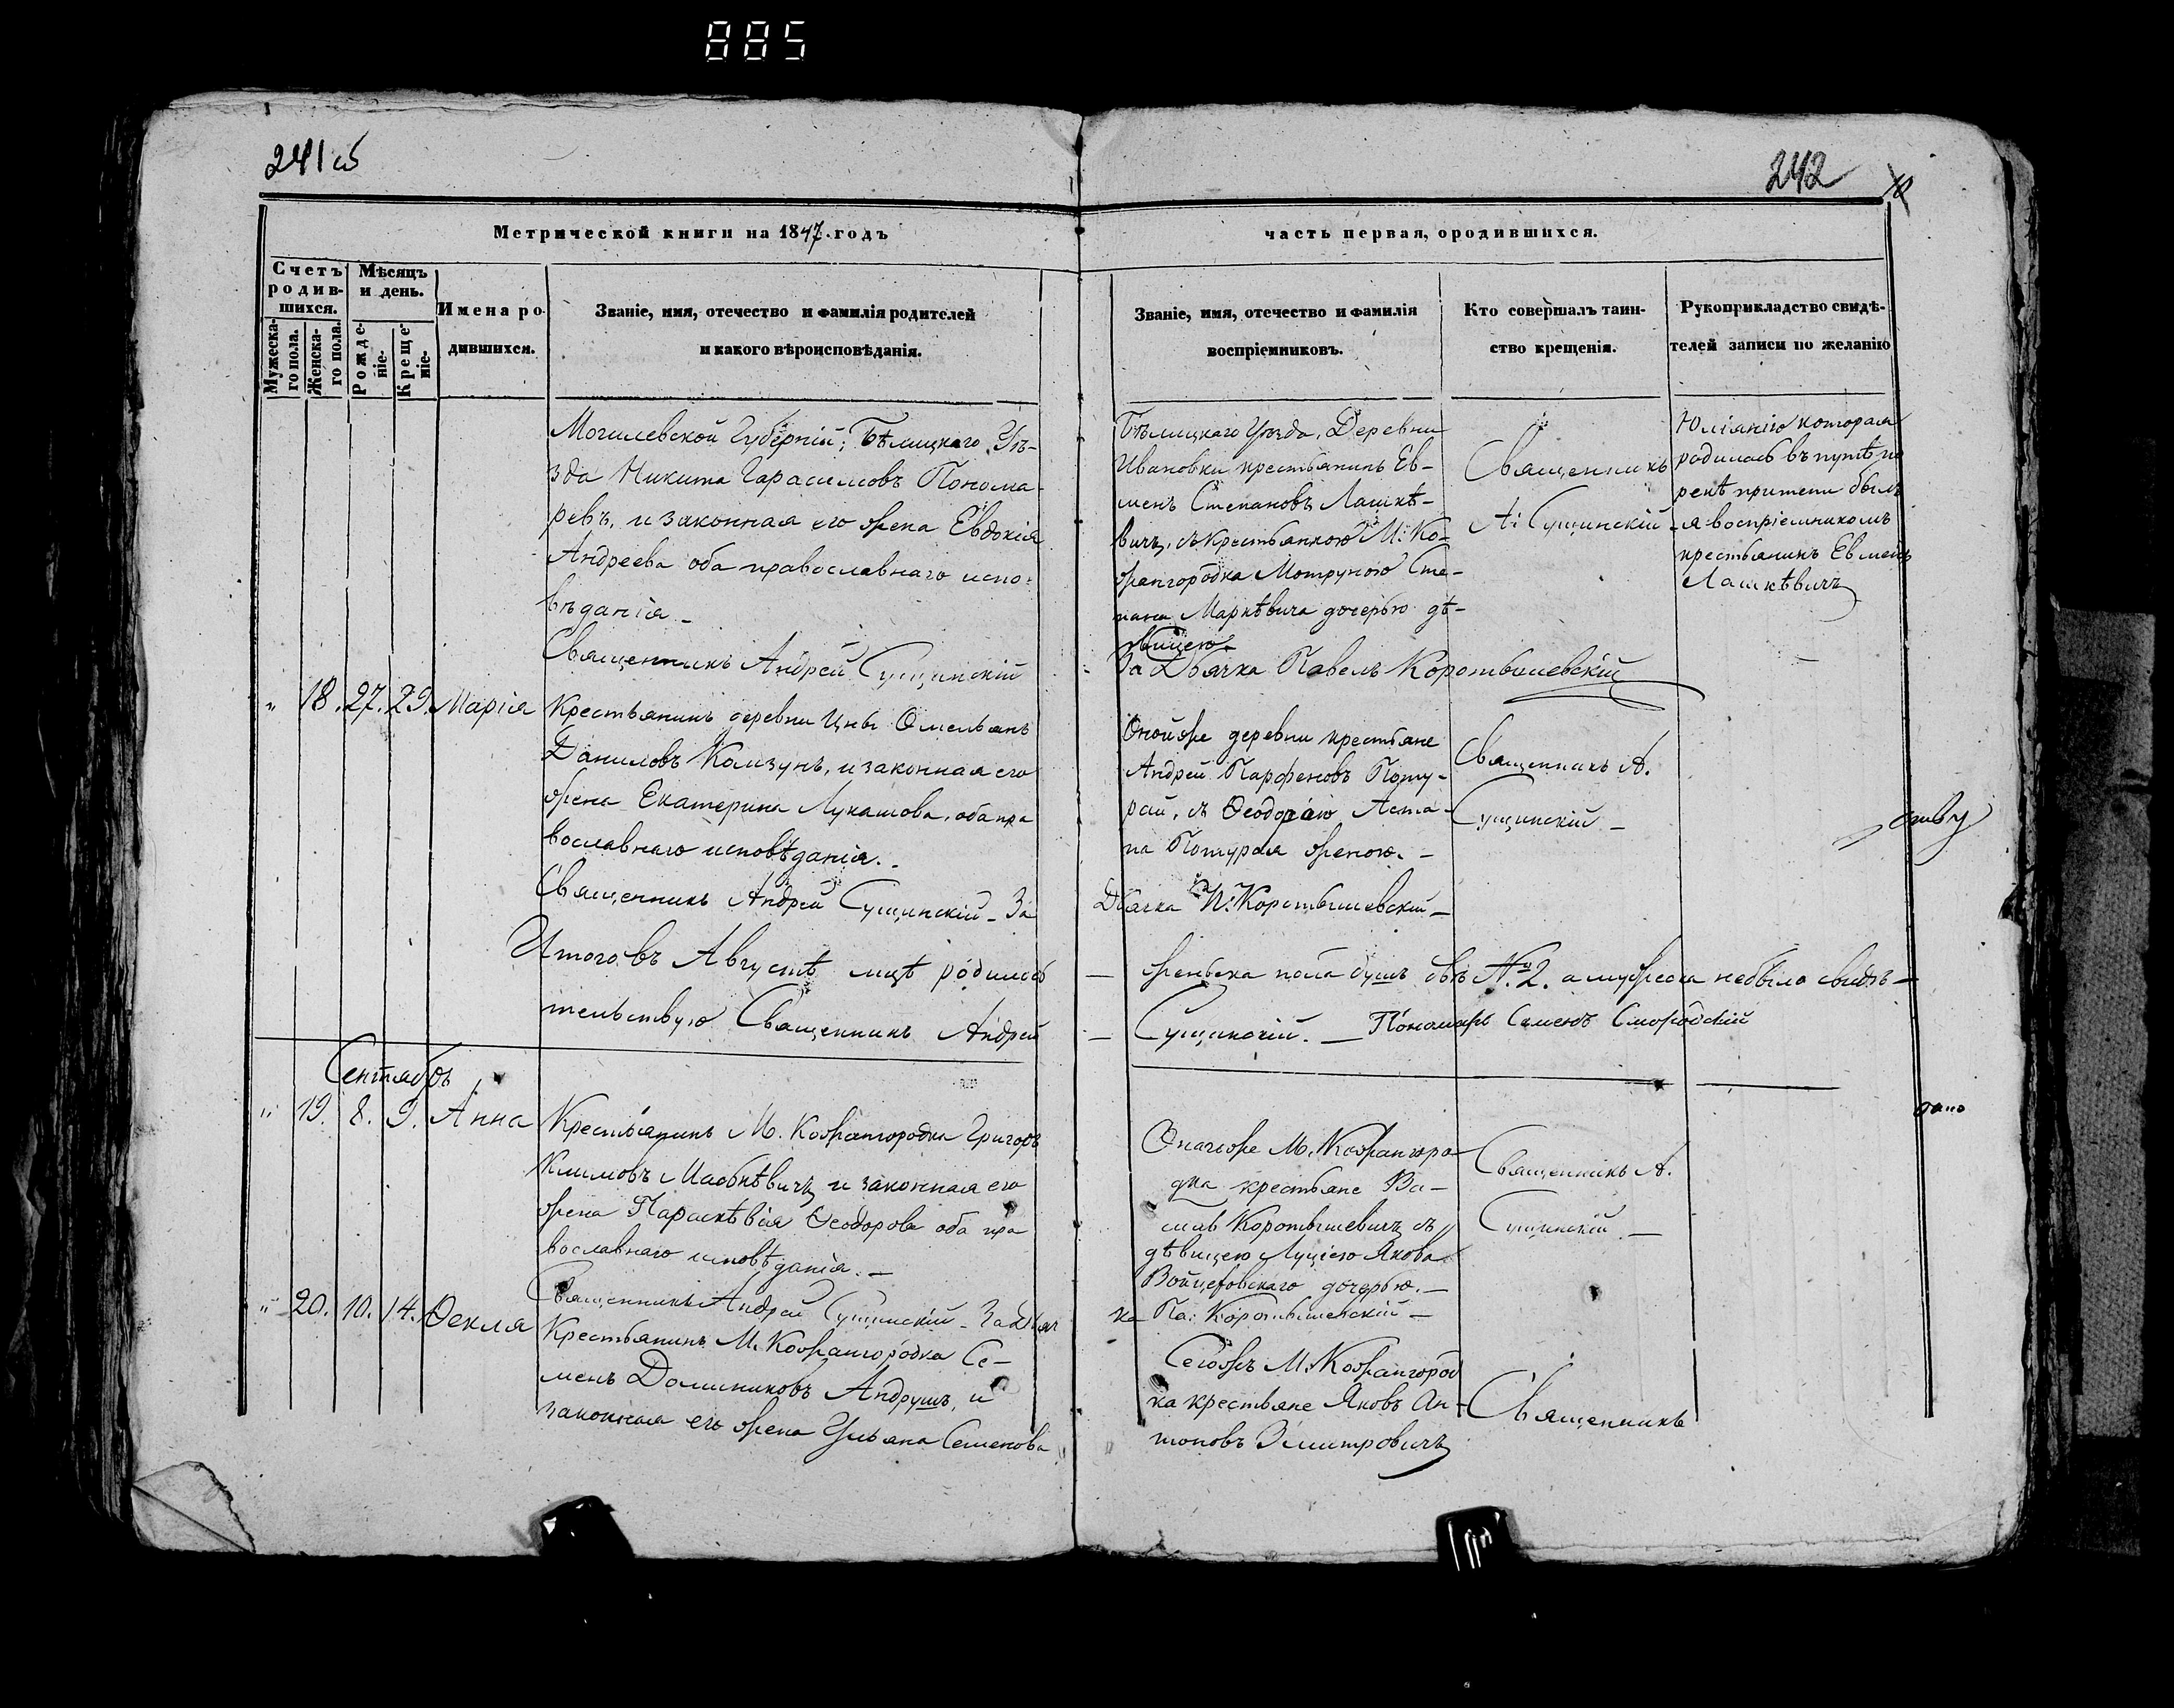 885
241 об
242
Метрической книги на 1847 годъ
часть первая, о родившихся.
Счетъ родив-шихся.
Мужеска-го пола.
Женска-го пола.
Мѣсяцъ и день.
Рожде-ніе.
Креще-ніе.
Имена ро-
дившихся.
Званіе, имя, отечество и фамилія родителей
и какого вѣроисповѣданія.
Званіе, имя, отечество и фамилія
воспріемниковъ.
Кто совершалъ таин-
ство крещенія.
Рукоприкладство свидѣ-
телей записи по желанію
Могилевской Губерніи; Бѣлицкаго Уѣ-
зда Никита Гарасимовъ Понома-
ревъ, и законная его жена Евдокія
Андреева оба православнаго испо-
вѣданія.
Священникъ Андрей Сущинскій
Бѣлицкаго Уѣзда, Деревни
Ивановки крестьянинъ Ев-
менъ Степановъ Лашкѣ-
вичъ, съ крестьянкою М: Ко-
жангородка Мотруною Сте-
пана Маркѣвича дочерью дѣ-
вицею.
За Дьячка Павелъ Коротышевскій
Священникъ
А: Сущинскій
Юліянію которая
родилась въ путѣ по
рекѣ Припети был-
я воспріемникомъ
крестьянинъ Евменъ
Лашкѣвичъ
" 18. 27. 29. Марія
Крестьянинъ деревни Цны Омельянъ
Даниловъ Колзунъ, и законная его
жена Екатерина Лукашова, оба пра
вославнаго исповѣданія.
Священникъ Андрей Сущинскій За
Оной же деревни крестьяне
Андрей Парфеновъ Поту-
рай, съ Ѳеодорою Аста-
па Потурая женою.
Дьячка П: Коротышевскій
Священникъ А.
Сущинскій
Итого въ Августѣ мцѣ родилось
женьска пола душъ двѣ №2. а мужеска небыло свидѣ-
тельствую Священникъ Андрей
Сущинскій. Пономарь Семенъ Смородскій
Сентябрь
" 19. 8. 9. Анна
Крестьянинъ М. Кожангородка Григоръ
Климовъ и законная его
жена Параскѣвія Ѳеодорова оба пра
вославнаго исповѣданія.
Священникъ Андрей Сущинскій За Дьяч
Оначоже М. Кожангоро
дка крестьяне Ва-
силь Коротышевичъ съ
дѣвицею Луціею Якова
Войцеховскаго дочерью.
ка Па: Коротышевскій
Священникъ А.
Сущинскій
" 20. 10. 14. Ѳекля
Крестьянинъ М. Кожангородка Се-
менъ Доминиковъ Андрушъ, и
законная его жена Ульяна Семенова
Сегожъ М. Кожангород
ка крестьяне Яковъ Ан-
тоновъ Змитровичъ
Священникъ